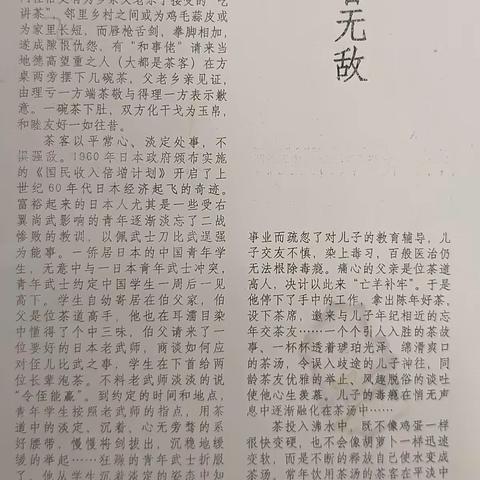 讲茶”，邻里乡村之间或为鸡毛蒜皮或
为家里长短，而唇枪舌剑，拳脚相加，
遂成隙恨仇怨，有“和事佬”请来当
地德高望重之人（大都是茶客）在方
桌两旁摆下几碗茶，父老乡亲见证，
由理亏一方端茶敬与得理一方表示歉
意。一碗茶下肚，双方化干戈为玉帛，
和睦友好一如往昔。
茶客以平常心、淡定处事，不
惧强敌。1960年日本政府颁布实施
的《国民收入倍增计划》开启了上
世纪60年代日本经济起飞的奇迹。
富裕起来的日本人尤其是一些受右
翼尚武影响的青年逐渐淡忘了二战
惨败的教训，以佩武士刀比武逞强
为能事。一侨居日本的中国青年学
生，无意中与一日本青年武士冲突，
青年武士约定中国学生一周后一见
高下。学生自幼寄居在伯父家，伯
父是位茶道高手，他也在耳濡目染
中懂得了个中三味，伯父请来了一
位要好的日本老武师，商谈如何应
对侄儿比武之事，学生在下首给两
位长辈泡茶。不料老武师淡淡的说
“令侄能赢”。到约定的时间和地点，
青年学生按照老武师的指点，用茶
道中的淡定、沉着、心无旁骛的系
好腰带，慢慢将剑拔出，沉稳地缓
缓的举起……狂躁的青年武士折服
了。他从学生沉着淡定的姿态中知
无敌
事业而疏忽了对儿子的教育辅导，儿
子交友不慎，染上毒习，百般医治仍
无法根除毒瘾。痛心的父亲是位茶道
高人，决计以此来“亡羊补牢”。于是
他停下了手中的工作，拿出陈年好茶，
设下茶席，邀来与儿子年纪相近的忘
年交茶友……一个个引人入胜的茶故
事、一杯杯透着琥珀光泽、绵滑爽口
的茶汤，令误入歧途的儿子神往，同
龄茶友优雅的举止、风趣脱俗的谈吐
使他心生羡慕，儿子的毒瘾在悄无声
息中逐渐融化在茶汤中……
茶投入沸水中，既不像鸡蛋一样
很快变硬，也不会像胡萝卜一样迅速
变软，而是不断的释放自己使水变成
茶汤。常年饮用茶汤的茶客在平淡中